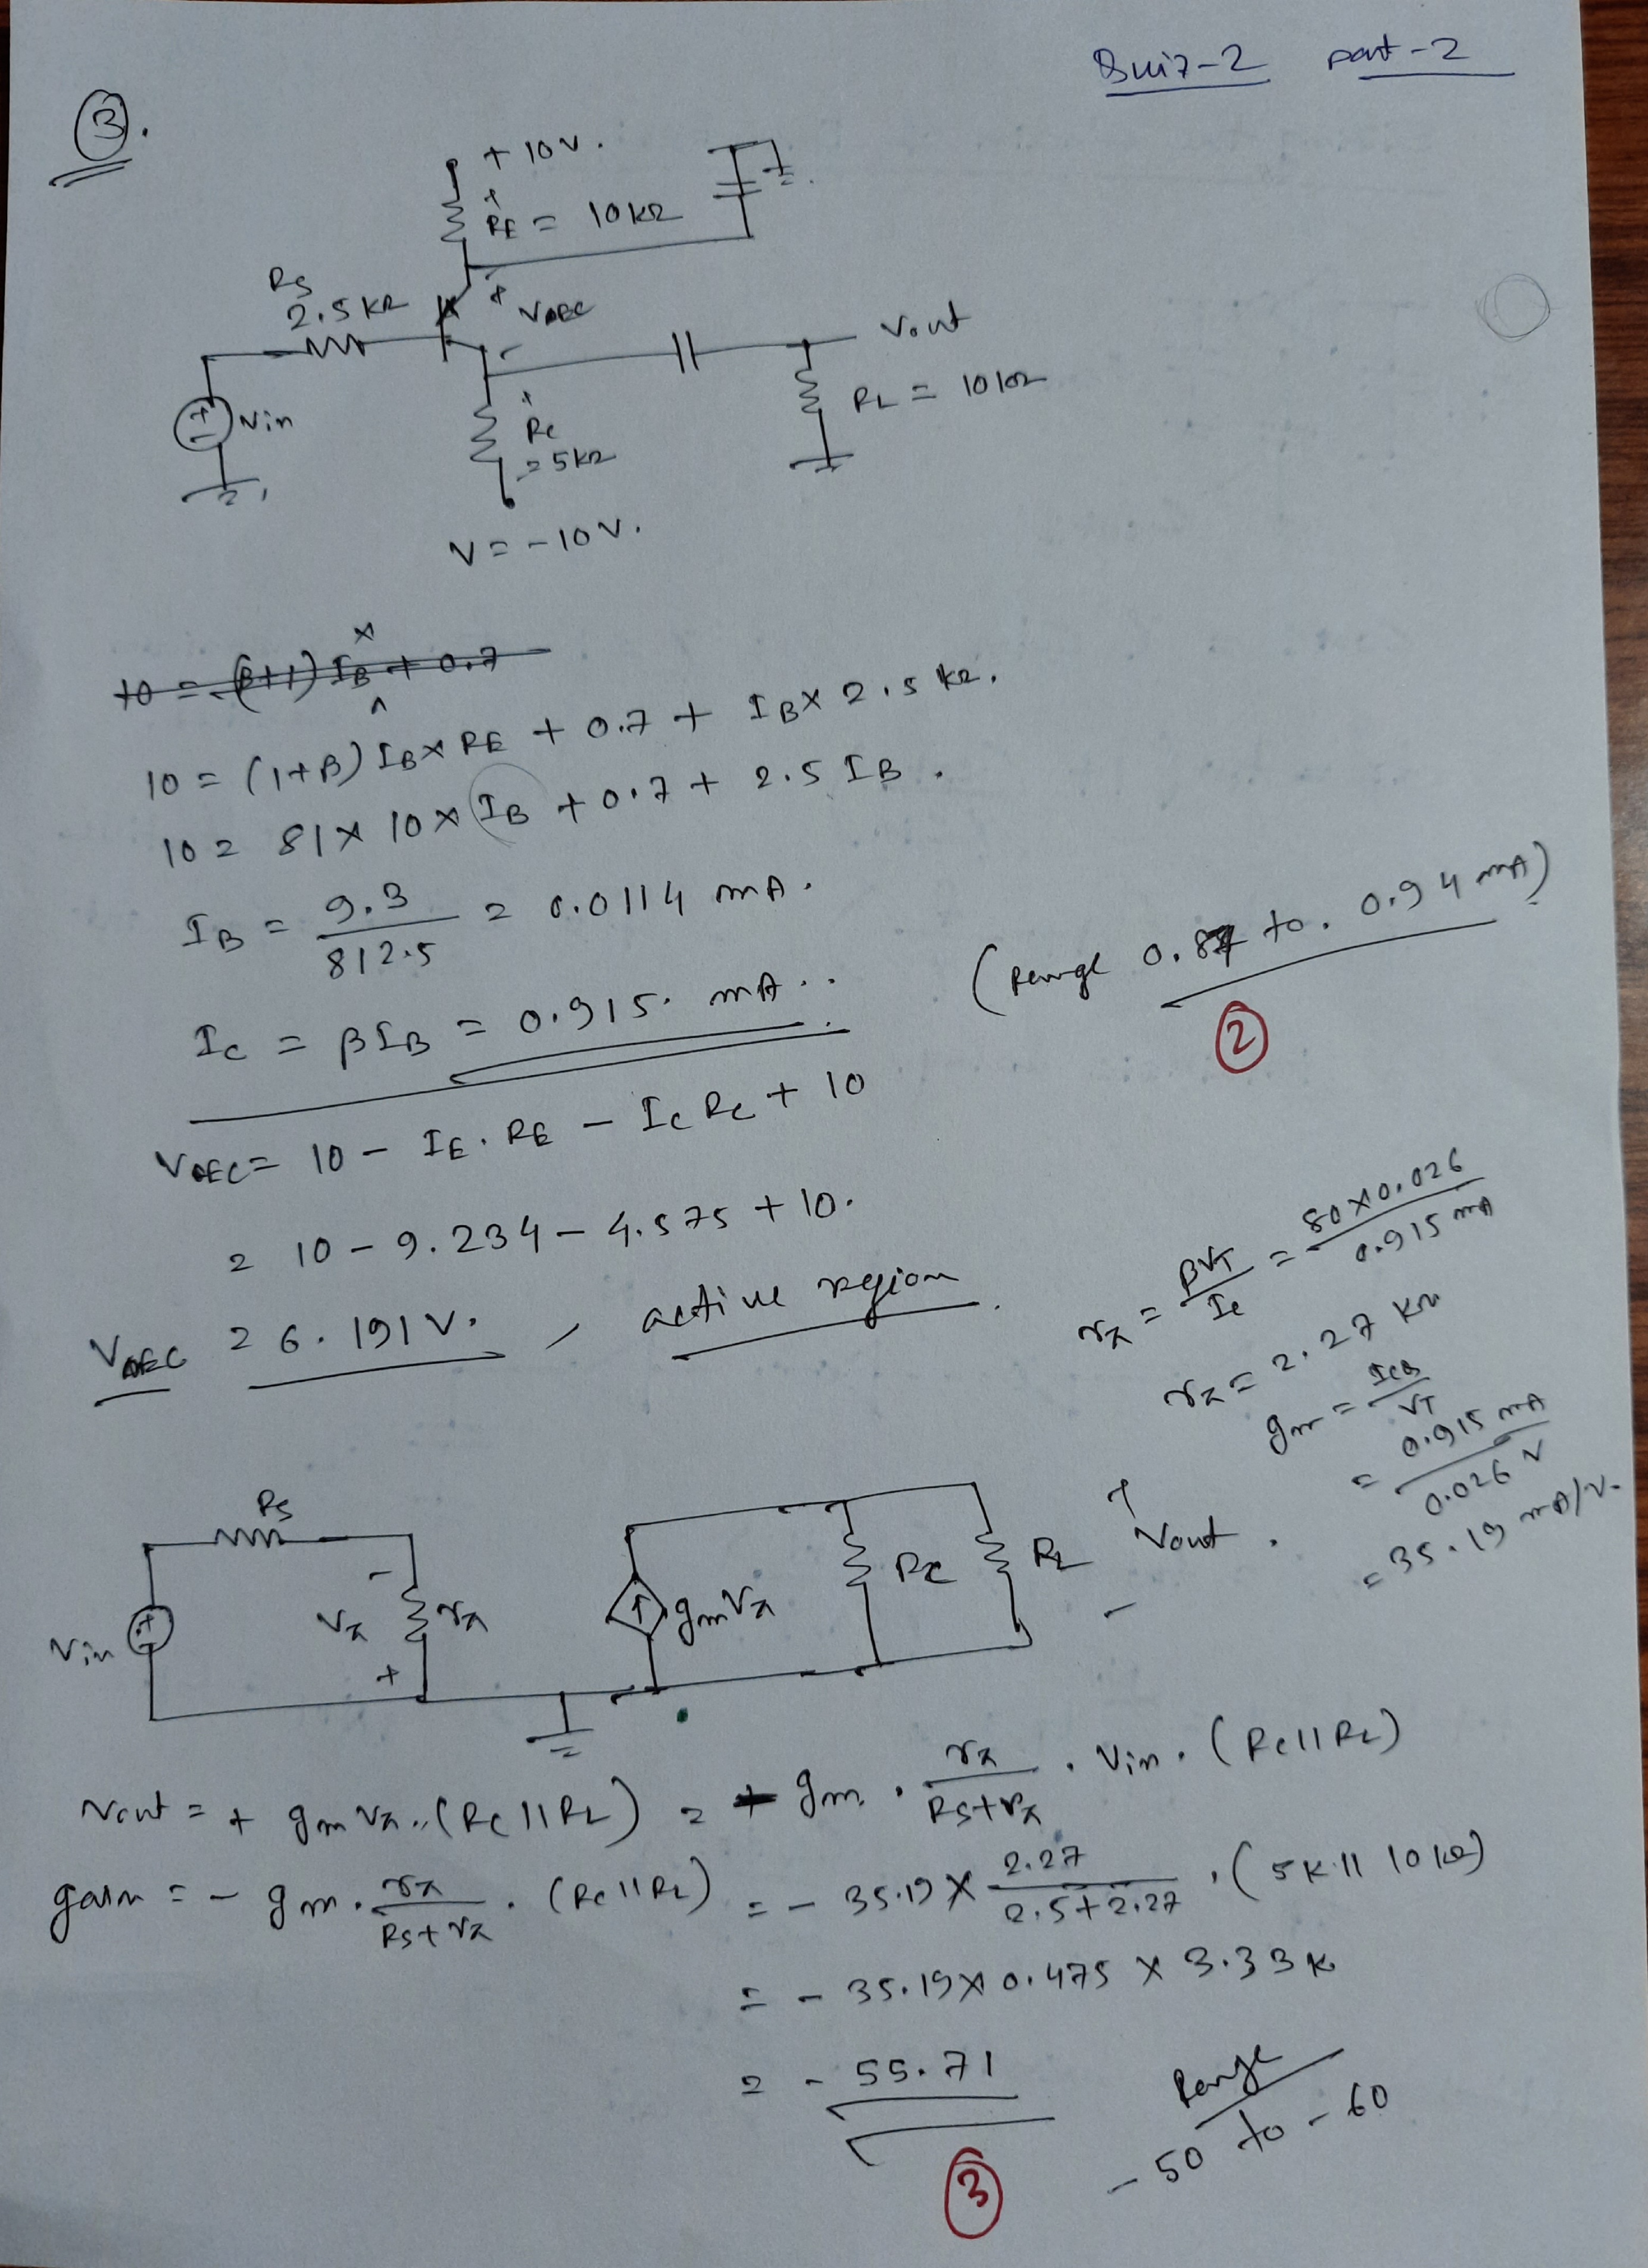 Quiz-2 part-2
3.
+ 10V.
+
RE = 10kΩ
RS
2.5 KΩ
+
VEC
-
Vout
+
-
Vin
+
RC
= 5kΩ
RL = 10kΩ
V = -10V.
10 = (β+1) IB + 0.7
x
10 = (1+β) IB x RE + 0.7 + IB x 2.5 kΩ.
10 = 81 x 10 x IB + 0.7 + 2.5 IB.
IB = 9.3 / 812.5 = 0.0114 mA.
IC = βIB = 0.915 mA..
(Range 0.87 to. 0.94 mA)
2
VEC = 10 - IE. RE - IC RC + 10
= 10 - 9.234 - 4.575 + 10.
VEC = 6.191 V. , active region.
rπ = βVT / IC = 80 x 0.026 / 0.915 mA
rπ = 2.27 KΩ
gm = ICQ / VT
= 0.915 mA / 0.026 V
= 35.19 mA/V.
RS
Vin
+
-
Vπ
+
rπ
gmVπ
RC
RL
+
Vout.
-
Vout = + gm Vπ.(RC || RL) = - gm. rπ / RS+rπ . Vin. (RC || RL)
gain = - gm. rπ / RS+rπ . (RC || RL) = - 35.19 x 2.27 / 2.5+2.27 . (5K || 10 kΩ)
= - 35.19 x 0.475 x 3.33 K
= - 55.71
3
Range
-50 to -60